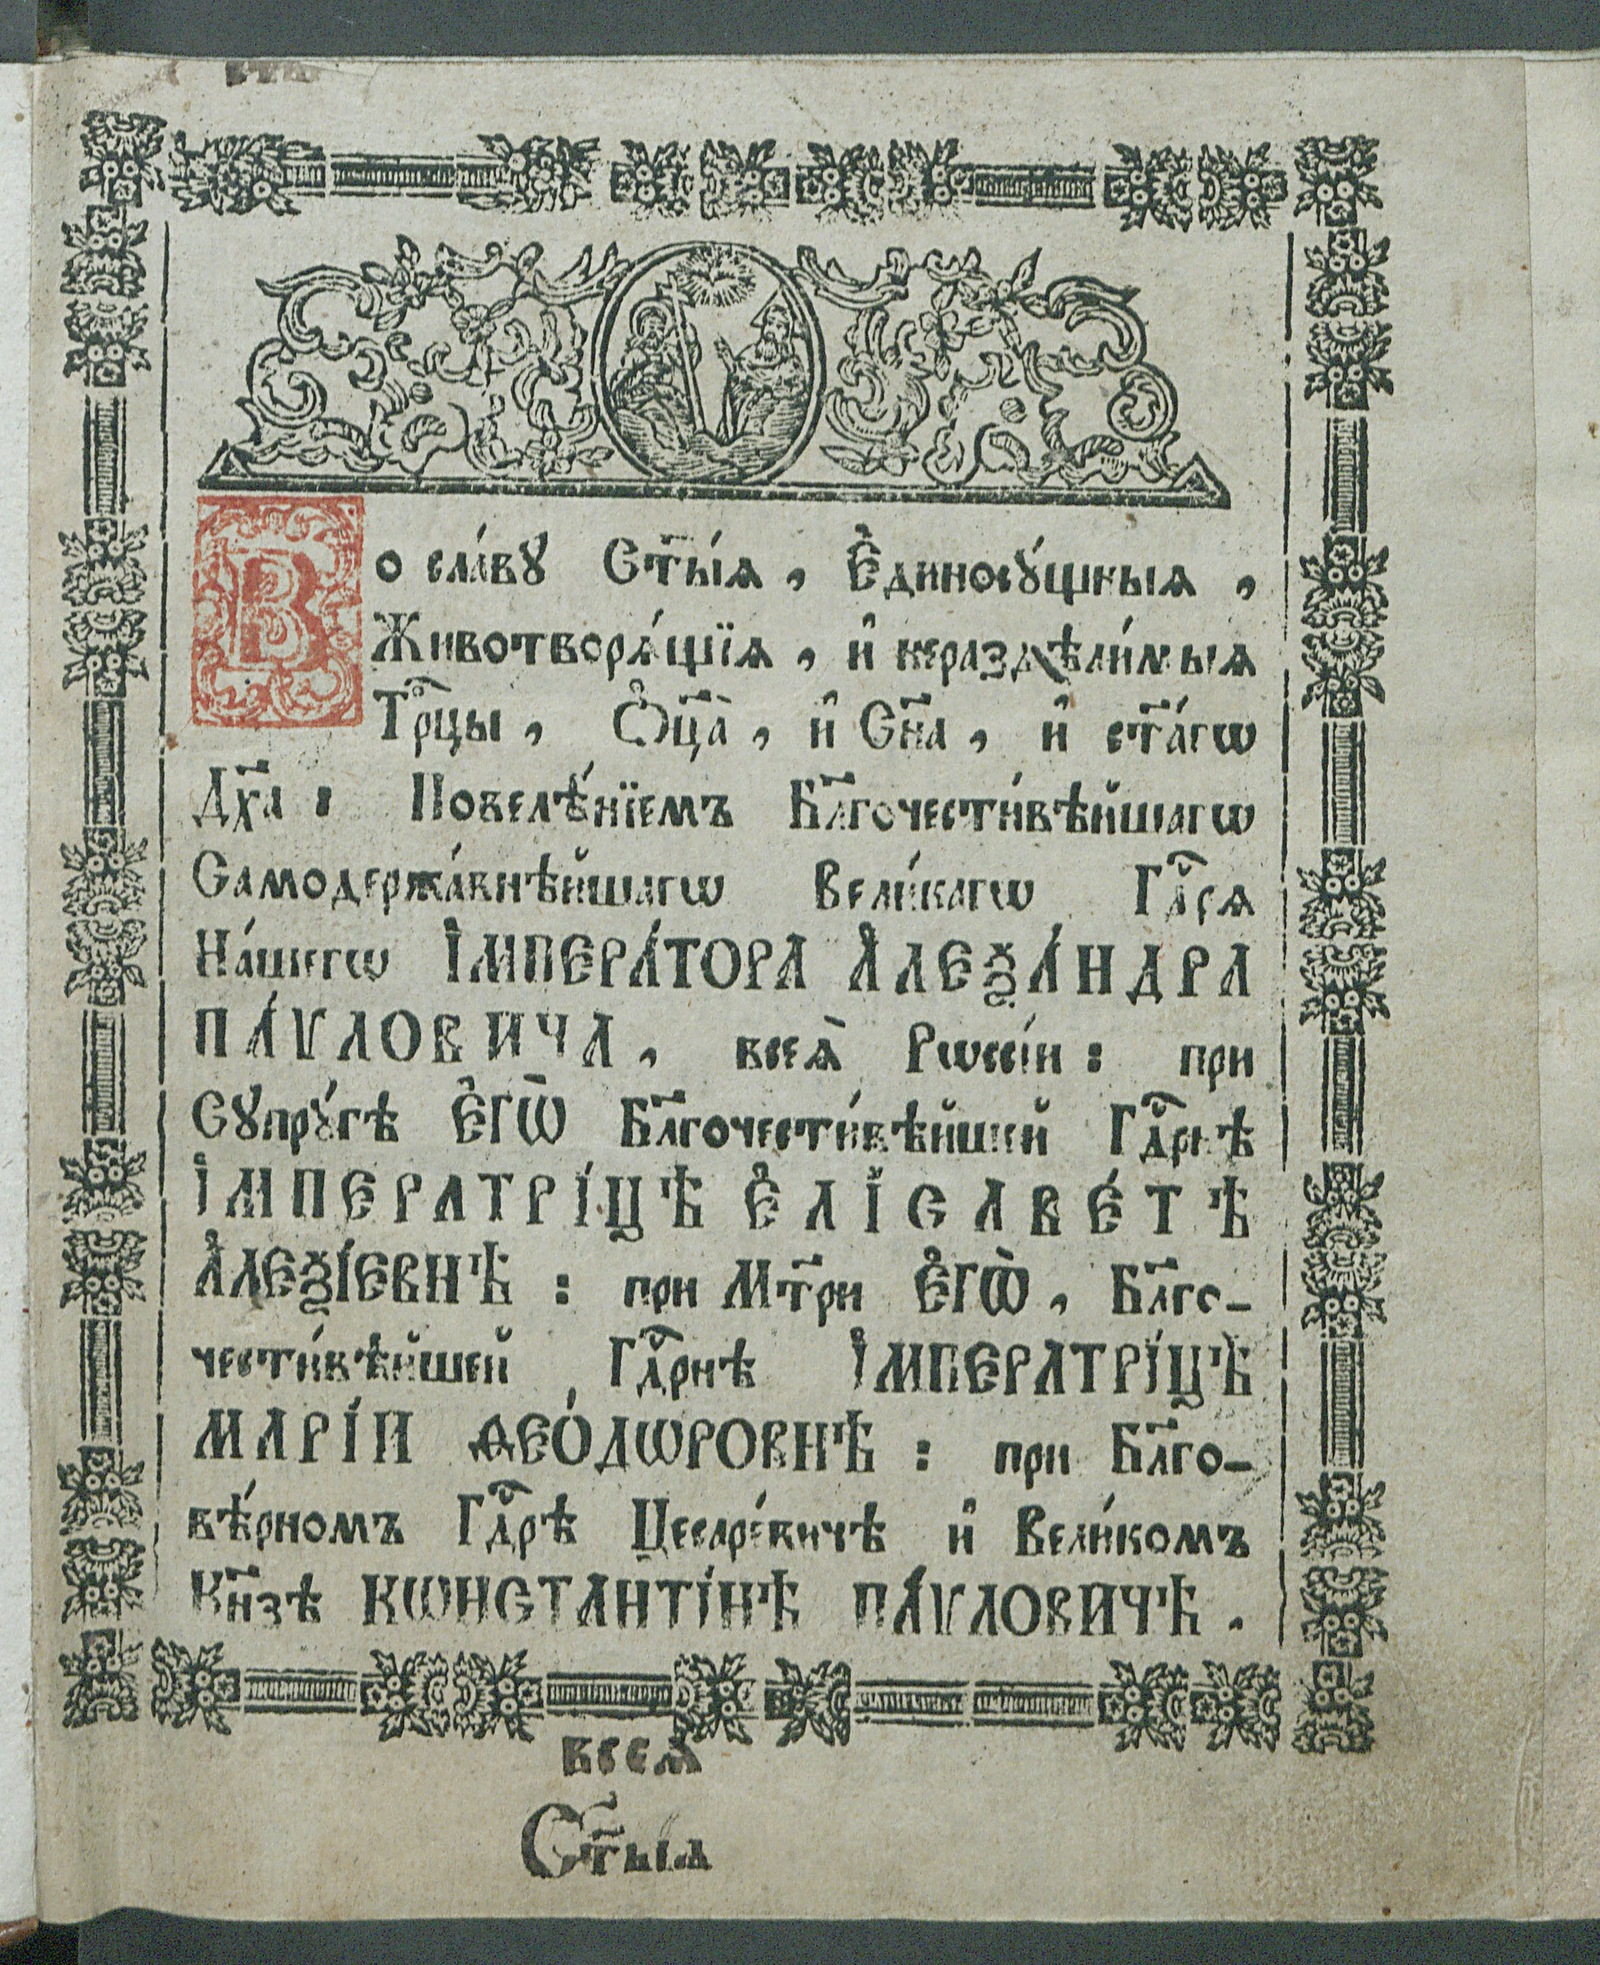 Во сла́вꙋ Ст҃ы́ѧ, Є҆диносꙋ́щныѧ,
Животворѧ́щїѧ, и҆ нераздѣли́мыѧ
Трⷪ҇цы, Ѻ҆ц҃а̀, и҆ Сн҃а, и҆ ст҃а́гѡ
Дх҃а: Повелѣ́нїемъ Бл҃гочести́вѣйшагѡ
Самодержа́внѣйшагѡ Вели́кагѡ Гдⷭ҇рѧ
На́шегѡ І҆МПЕРА́ТОРА А҆ЛЕѮА́НДРА
ПА́ѴЛОВИЧА, всеѧ̀ Рѡссі́и: при
Сꙋпрꙋ́гѣ Є҆ГѠ̀ Бл҃гочести́вѣйшей Гдⷭ҇рнѣ
І҆МПЕРАТРІ́ЦѢ Є҆ЛІСАВЕ́ТѢ
А҆ЛЕѮІ́ЕВНѢ: при Мт҃ри Є҆ГѠ̀, Бл҃го-
чести́вѣйшей Гдⷭ҇рнѣ І҆МПЕРАТРІ́ЦѢ
МАРІ́И ѲЕО́ДѠРОВНѢ: при Бл҃го-
вѣ́рномъ Гдⷭ҇рѣ Цесаре́вичѣ и҆ Вели́комъ
Кн҃зѣ КѠНСТАНТІ́НѢ ПА́ѴЛОВИЧѢ.
всеѧ̀
Ст҃ы́ѧ